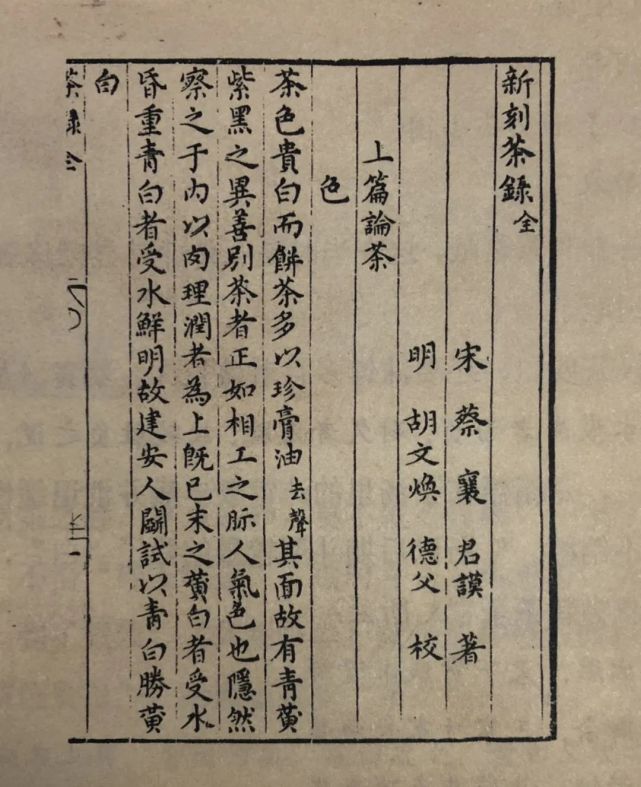 新刻茶錄全
宋 蔡 襄 君謨 著
明 胡文煥 德父 校
上篇論茶
色
茶色貴白而餅茶多以珍膏油去聲其面故有青黃
紫黑之異善別茶者正如相工之眎人氣色也隱然
察之于內以肉理潤者為上既已末之黃白者受水
昏重青白者受水鮮明故建安人鬭試以青白勝黃
白
茶錄全